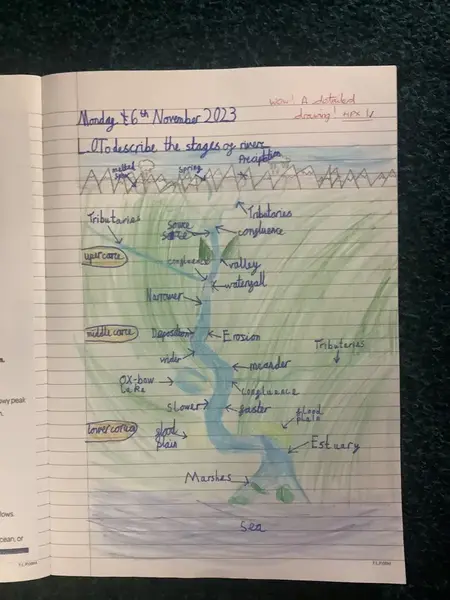 Wow! A detailed
drawing!
Monday 6th November 2023
L.O To describe the stages of river
melted
spring
Precipitation
Tributaries
Tributaries
source
confluence
confluence
uper corce
valley
waterfall
Narrower
middle corce
Deposition
Erosion
Tributaries
wider
meander
OX-bow
lake
confluence
Slower
faster
flood
plain
lower corce
flood
plain
Estuary
Marshes
Sea
wy peak
lows.
cean, or